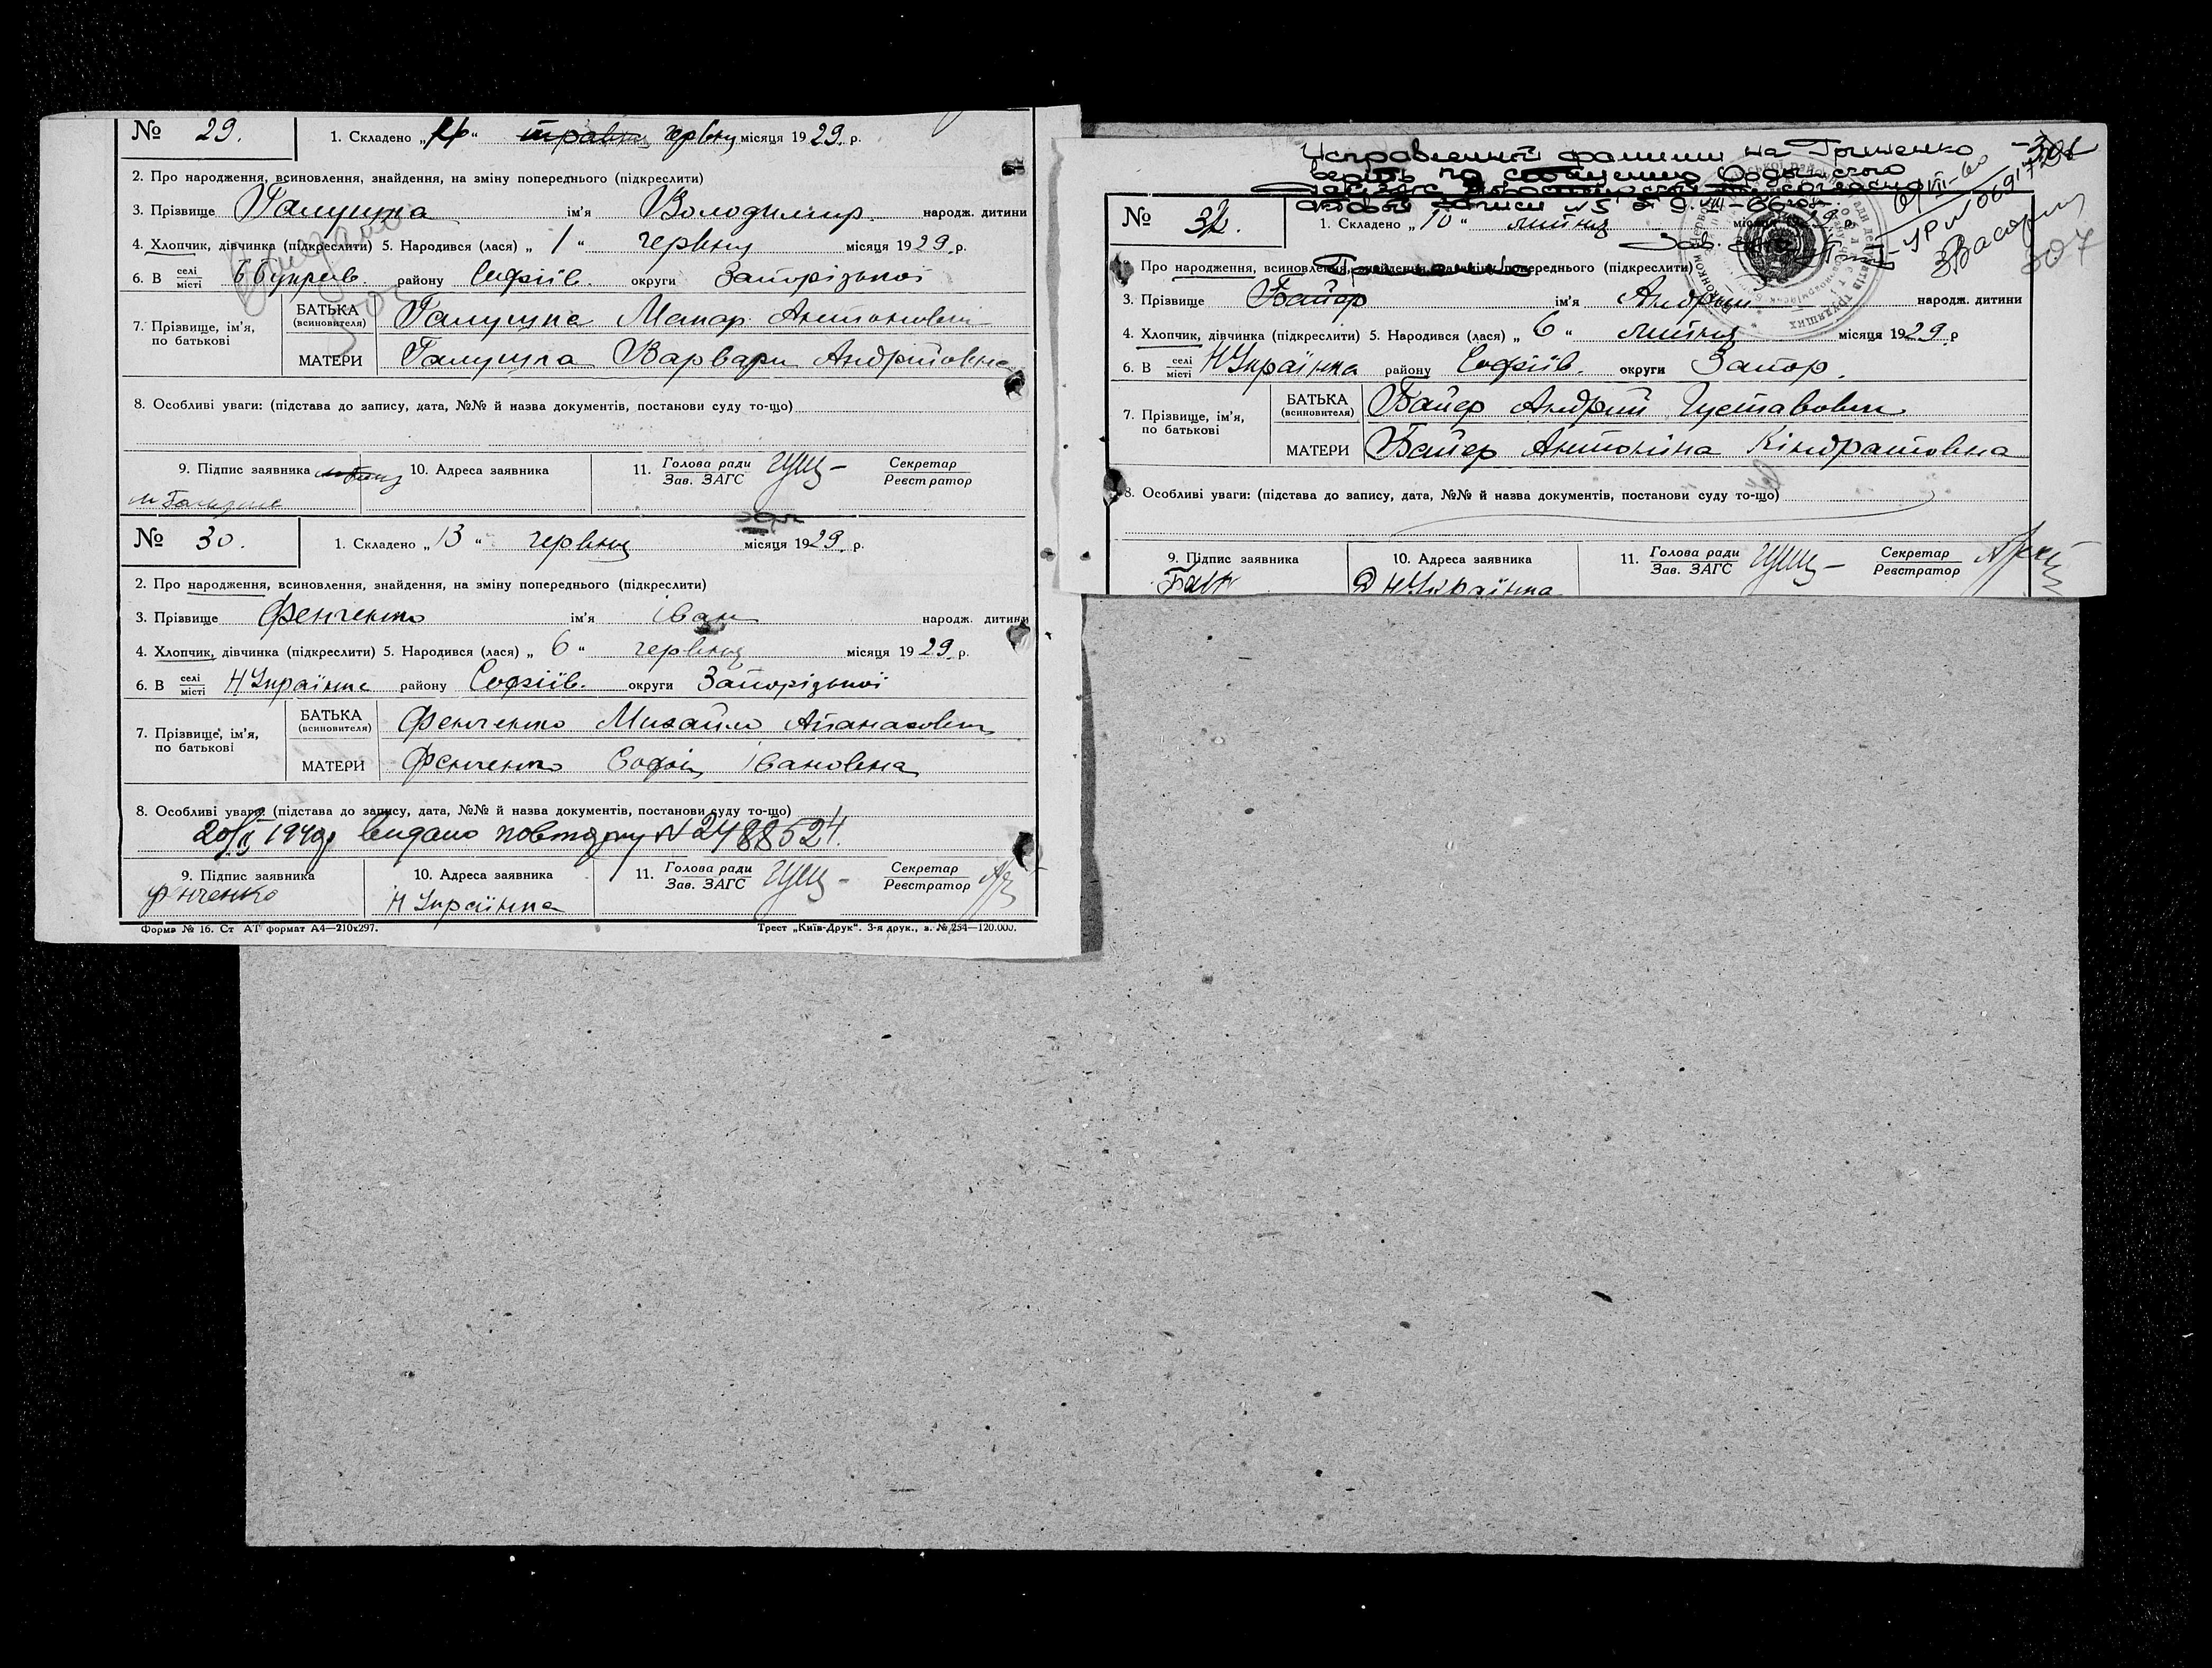 № 29. 1. Складено „ “ травня червня місяця 1929. р.
2. Про народження, всиновлення, знайдення, на зміну попереднього (підкреслити)
3. Прізвище Галушка ім'я Володимир. народж. дитини
4. Хлопчик, дівчинка (підкреслити) 5. Народився (лася) „ 1 “ червня місяця 1929. р.
6. В селі місті району Софіїв. округи Запорізької
7. Прізвище, ім'я, по батькові
БАТЬКА (всиновителя) Галушка Макар Антонович
МАТЕРИ Галушка Варвара Андріївна
8. Особливі уваги: (підстава до запису, дата, №№ й назва документів, постанови суду то-що)
9. Підпис заявника 10. Адреса заявника 11. Голова ради Зав. ЗАГС Секретар Реєстратор
№ 30. 1. Складено „ 13 “ червня місяця 1929. р.
2. Про народження, всиновлення, знайдення, на зміну попереднього (підкреслити)
3. Прізвище Фенченко ім'я Іван народж. дитини
4. Хлопчик, дівчинка (підкреслити) 5. Народився (лася) „ 6 “ червня місяця 1929. р.
6. В селі місті Н Українка району Софіїв. округи Запорізької
7. Прізвище, ім'я, по батькові
БАТЬКА (всиновителя) Фенченко Михайло Апанасович
МАТЕРИ Фенченко Софія Івановна
8. Особливі уваги: (підстава до запису, дата, №№ й назва документів, постанови суду то-що)
1940р видано повторну N 2488524.
9. Підпис заявника 10. Адреса заявника 11. Голова ради Зав. ЗАГС Секретар Реєстратор
Фнченко Н Українка
Форма № 16. Ст АТ формат А4—210х297. Трест „Київ-Друк“. 3-я друк., з. № 254—120.000.
на Гриненко
307
№ 32. 1. Складено „ 10 “ липня
2. Про народження, всиновлення, знайдення, на зміну попереднього (підкреслити)
3. Прізвище Байер ім'я Андрій народж. дитини
4. Хлопчик, дівчинка (підкреслити) 5. Народився (лася) „ 6 “ липня місяця 1929. р
6. В селі місті Н Українка району Софіїв. округи Запор.
7. Прізвище, ім'я, по батькові
БАТЬКА (всиновителя) Байер Андрій Густавович
МАТЕРИ Байер Антоніна Кіндратовна
8. Особливі уваги: (підстава до запису, дата, №№ й назва документів, постанови суду то-що)
9. Підпис заявника 10. Адреса заявника 11. Голова ради Зав. ЗАГС Секретар Реєстратор
Н Українка